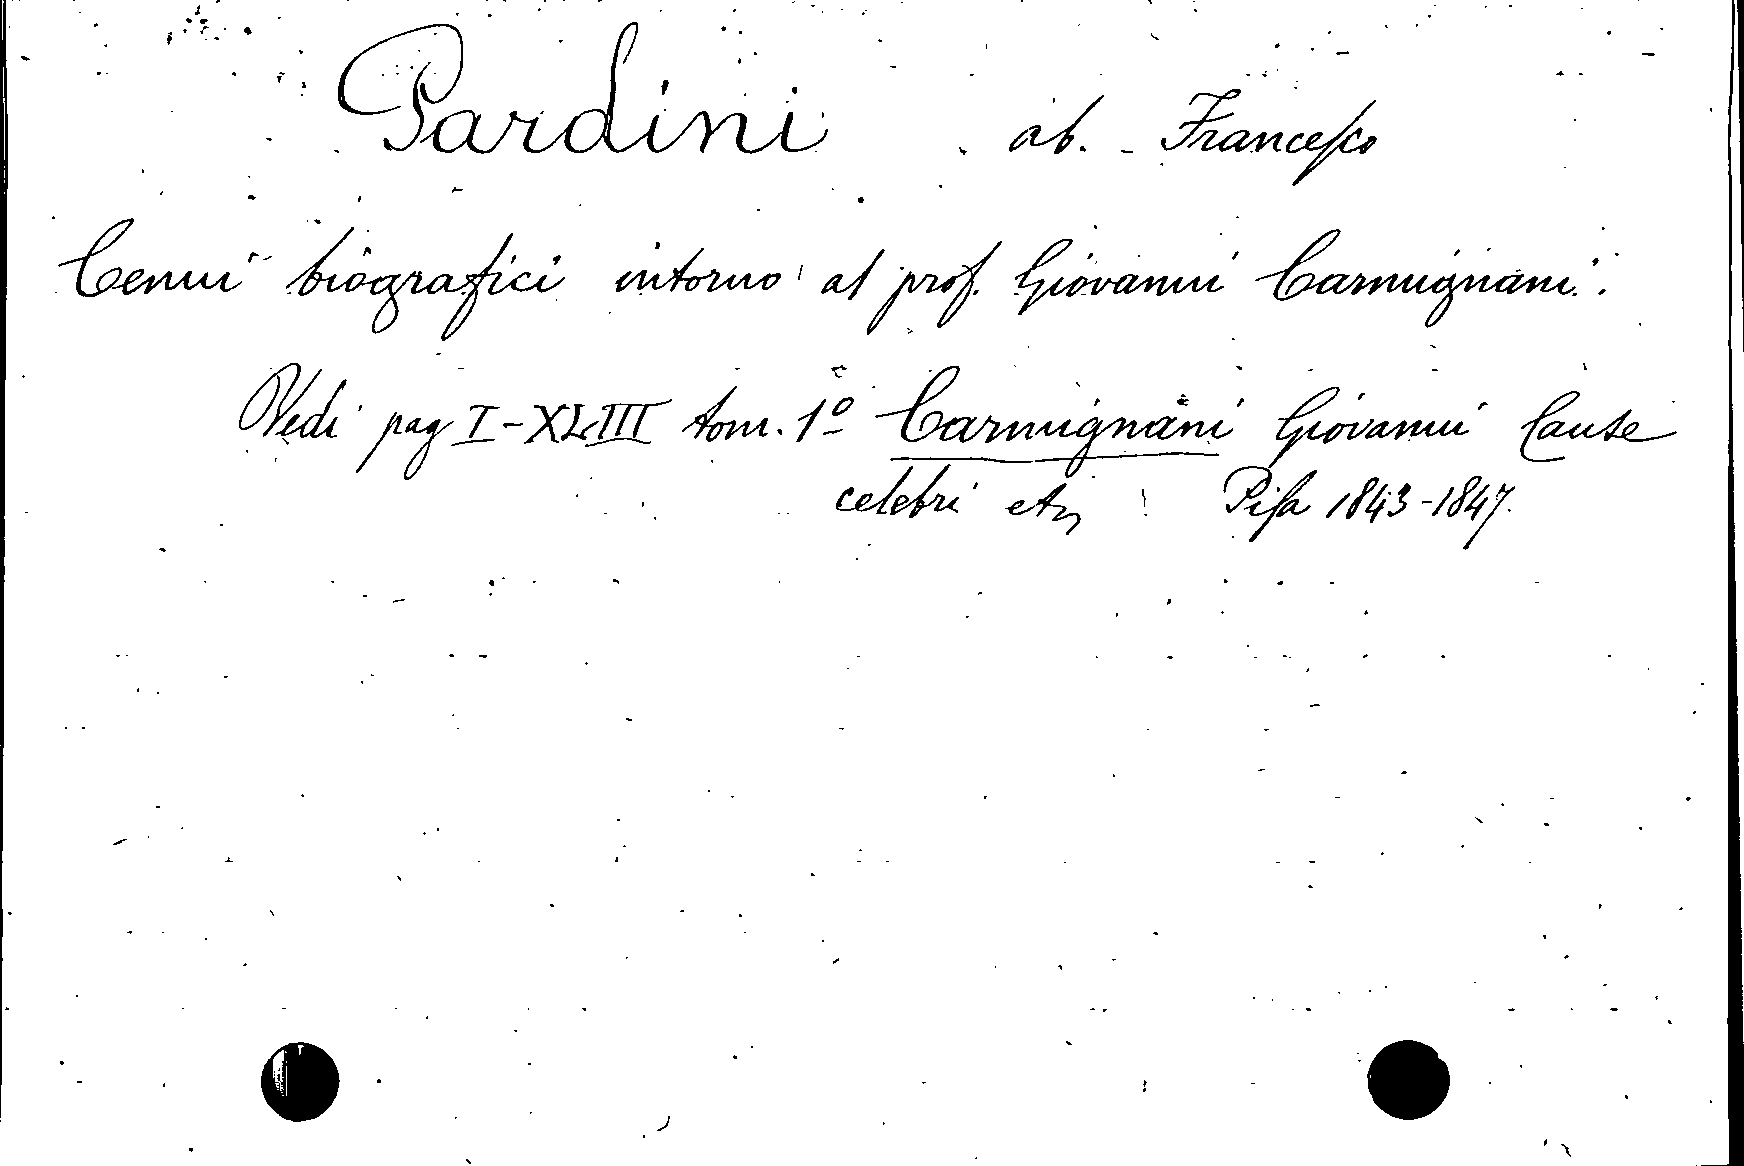 Pardini ab. Francesco
Cenni biografici intorno al prof. Giovanni Carmignani.
Vedi pag I-XLIII tom. 1º Carmignani Giovanni Cause
celebri etc Pisa 1843-1847.